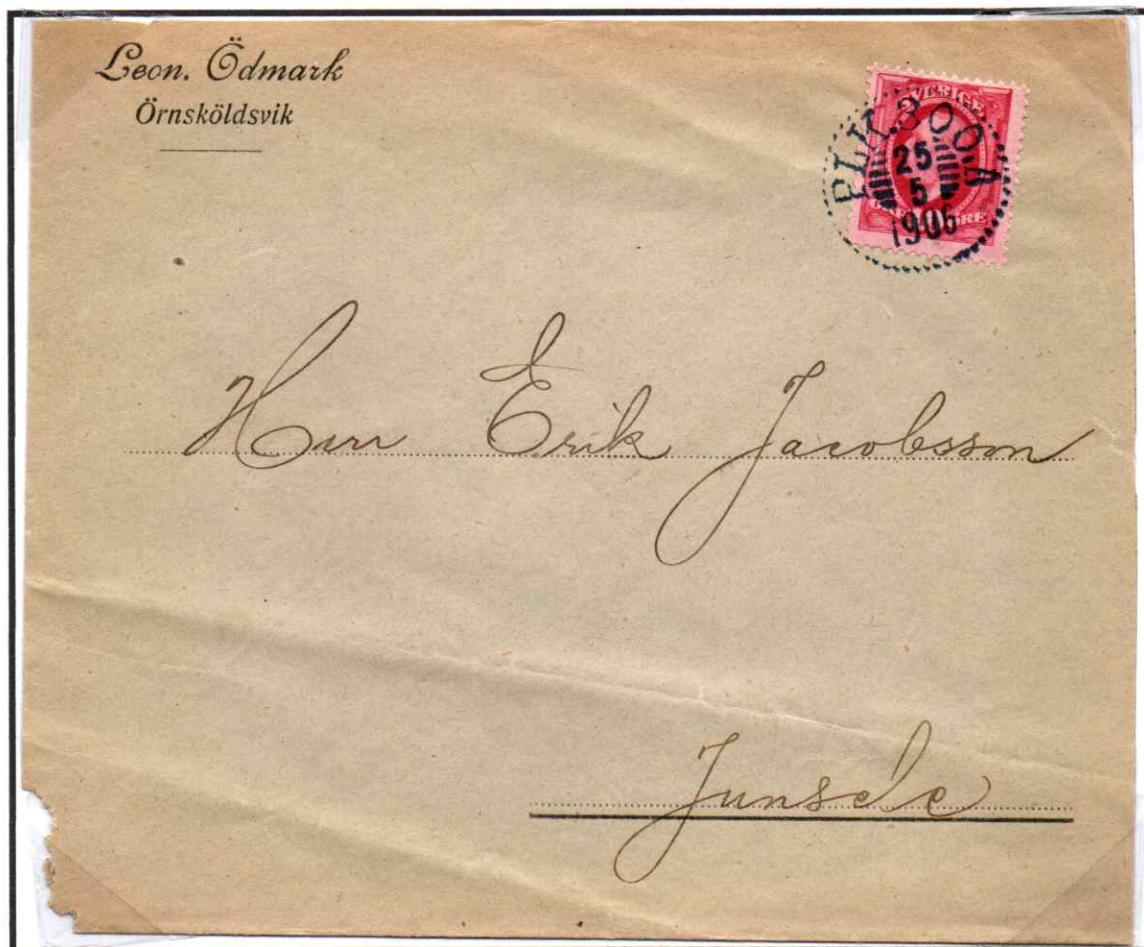 Leon. Ödmark
Örnsköldsvik
SVERIGE
PLK. 300. A
25
5
1906
ÖRE
Herr Erik Jacobsson
Junsele